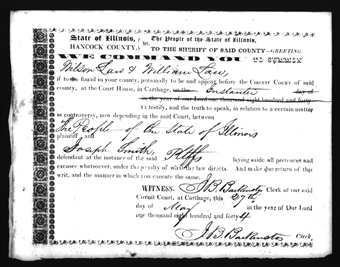 State of Illinois, } The People of the State of Illinois,
HANCOCK COUNTY. } ss. TO THE SHERIFF OF SAID COUNTY—GREETING
WE COMMAND YOU TO SUMMON
Wilson Law & William Law
if to be found in your county, personally to be and appear before the CIRCUIT COURT of said
county, at the Court House, in Carthage, on the Instanter day of
in the year of our Lord one thousand eight hundred and forty
to testify, and the truth to speak, in relation to a certain matter
in controversy, now depending in the said Court, between
The People of the State of Illinois
plaintiff and
Joseph Smith
defendant at the instance of the said Pltffs laying aside all pretences and
excuses whatsoever, under the penalty of what the law directs. And make due return of this
writ, and the manner in which you execute the same.
WITNESS. J B Backenstos Clerk of our said
Circuit Court, at Carthage, this 27th
day of May in the year of Our Lord
one thousand eight hundred and forty 4
J. B. Backenstos Clerk,